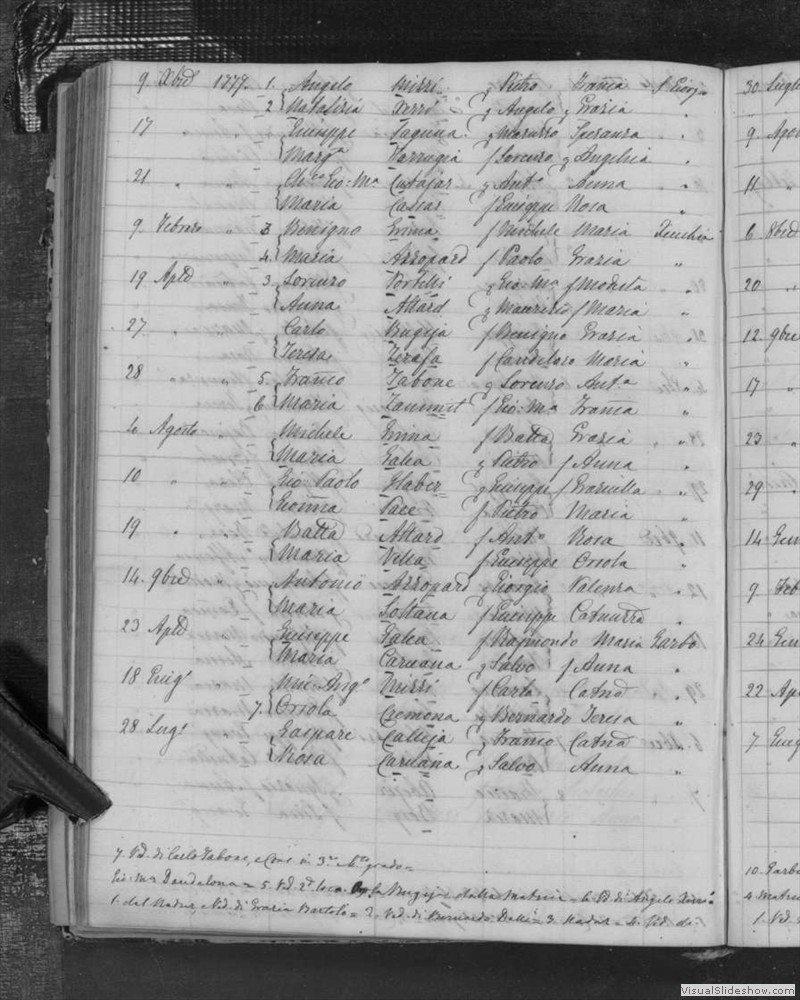 9 Xbre 1779. 1. Angelo Mizzi q Pietro S. Giorgio
2 Natalizia q Angelo q Grazia "
17 " Giuseppe Laguna q Marurro Speranza "
Marga Farrugia f Lorenzo q Angelica "
21 " " Gio: Ma Cutajar q Anto Anna "
Maria Cassar f Giuseppe Rosa "
9 Febraro " 3 Benigno f Michele Maria
4. Maria Azzopard f Paolo Grazia "
19 Aple " 3. Lorenzo Portelli q Gio: Ma f Modesta "
Anna Attard q Maurizio f Maria "
27 " " Carlo Bugeja f Benigno Grazia "
Teresa Zerafa f Candeloro Maria "
28 " 5. Franco Tabone q Lorenzo Anta "
6 Maria Zammit f Gio: Ma "
4 Agosto Michele f Batta Grazia "
Maria Galea q Pietro f Anna "
10 " Gio Paolo Haber q Giuseppe f Graziulla "
Gioanna Pace f Pietro Maria "
19 " Batta Attard f Anto Rosa "
Maria Vella f Giuseppe Orsola "
14. 9bre " Antonio Azzopard q Giorgio Valenza "
Maria Soltana f Giuseppe "
23 Aple Giuseppe Galea f Raimondo Maria Garbo
Maria Caruana q Salvo f Anna "
18 Giugo Ango Mizzi f Carlo Catna "
7. Orsola Cremona q Bernardo Teresa "
28 Lugo Gaspare Calleja q Franco Catna "
Rosa Caruana q Salvo Anna "
7 Vd. di Carlo Tabone, e Cons. in 3o e 4to grado =
Gio: Ma Dandalona = 5. Vd 2o loco Bugeja dalla Matrice = 6 Vd di Angelo
1. dal Nadur e Vd. di Grazia Bartolo = 2. Vd. di Bernardo = 3. Nadur = 4. Vd. di:
30 Luglio
"
9 Agos
11 "
6 8bre
20 "
12. 9bre
17 "
23 "
29 "
14 Gen
9 Feb
24 Gen
22 Apr
7 Giug
10. Garbo
4 Matri
1. Vd.
VisualSlideshow.com